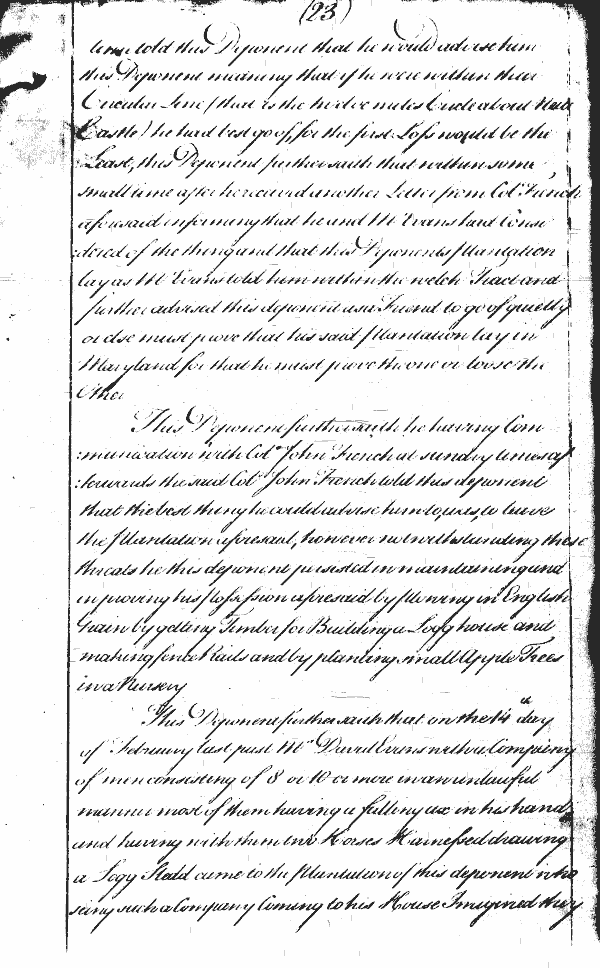 (23)
time told this Deponent that he would advise him
this Deponent meaning that if he were within their
Circular Line (that is the twelve miles Circle about New
Castle) he had best go of, for the first Loss would be the
Least, this Deponent further saith that within some
small time after he received another Letter from Col. French
aforesaid informing that he and Mr Evans had Consi
:dered of the thing and that this Deponents Plantation
lay as Mr Evans told him within the welch Tract and
further advised this deponent as a Friend to go of quietly
or else must prove that his said Plantation lay in
Maryland for that he must prove the one or loose the
Other
This Deponent further saith he having Com
:munication with Col. John French at sundry times af
:terwards the said Col. John French told this deponent
that the best thing he could advise him to, was, to leave
the Plantation aforesaid, however notwithstanding these
threats he this deponent persisted in maintaining and
improving his Possession aforesaid by Plowing in English
Grain by getting Timber for Building a Logg house and
making fence Rails and by planting small Apple Trees
in a Nursery
This Deponent further saith that on the 14th day
of February last past Mr David Evans with a Company
of men consisting of 8 or 10 or more in an unlawful
manner most of them having a falling ax in his hand
and having with them two Horses Harnessed drawing
a Logg Sledd came to the Plantation of this deponent who
seing such a Company Coming to his House Imagined they